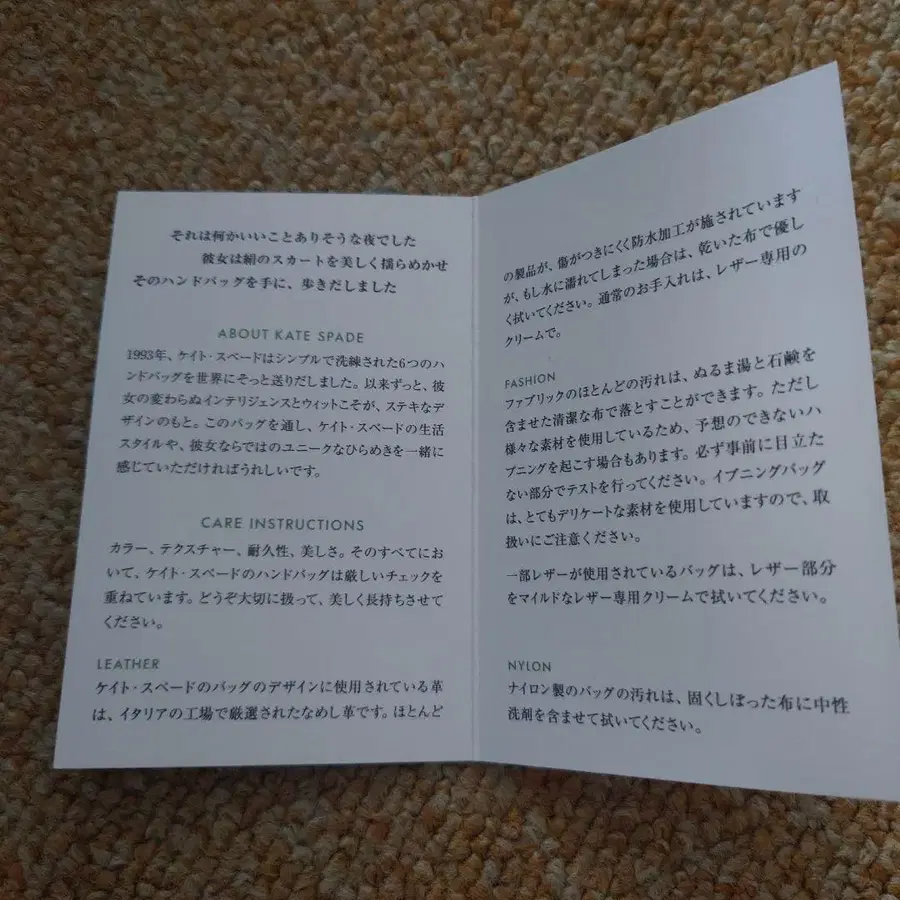 それは何かいいことありそうな夜でした
彼女は絹のスカートを美しく揺らめかせ
そのハンドバッグを手に、歩きだしました
ABOUT KATE SPADE
1993年、ケイト・スペードはシンプルで洗練された6つのハ
ンドバッグを世界にそっと送りだしました。以来ずっと、彼
女の変わらぬインテリジェンスとウィットこそが、ステキなデ
ザインのもと。このバッグを通し、ケイト・スペードの生活
スタイルや、彼女ならではのユニークなひらめきを一緒に
感じていただければうれしいです。
CARE INSTRUCTIONS
カラー、テクスチャー、耐久性、美しさ。そのすべてにお
いて、ケイト・スペードのハンドバッグは厳しいチェックを
重ねています。どうぞ大切に扱って、美しく長持ちさせて
ください。
LEATHER
ケイト・スペードのバッグのデザインに使用されている革
は、イタリアの工場で厳選されたなめし革です。ほとんど
の製品が、傷がつきにくく防水加工が施されています
が、もし水に濡れてしまった場合は、乾いた布で優し
く拭いてください。通常のお手入れは、レザー専用の
クリームで。
FASHION
ファブリックのほとんどの汚れは、ぬるま湯と石鹸を
含ませた清潔な布で落とすことができます。ただし
様々な素材を使用しているため、予想のできないハ
プニングを起こす場合もあります。必ず事前に目立た
ない部分でテストを行ってください。イブニングバッグ
は、とてもデリケートな素材を使用していますので、取
扱いにご注意ください。
一部レザーが使用されているバッグは、レザー部分
をマイルドなレザー専用クリームで拭いてください。
NYLON
ナイロン製のバッグの汚れは、固くしぼった布に中性
洗剤を含ませて拭いてください。